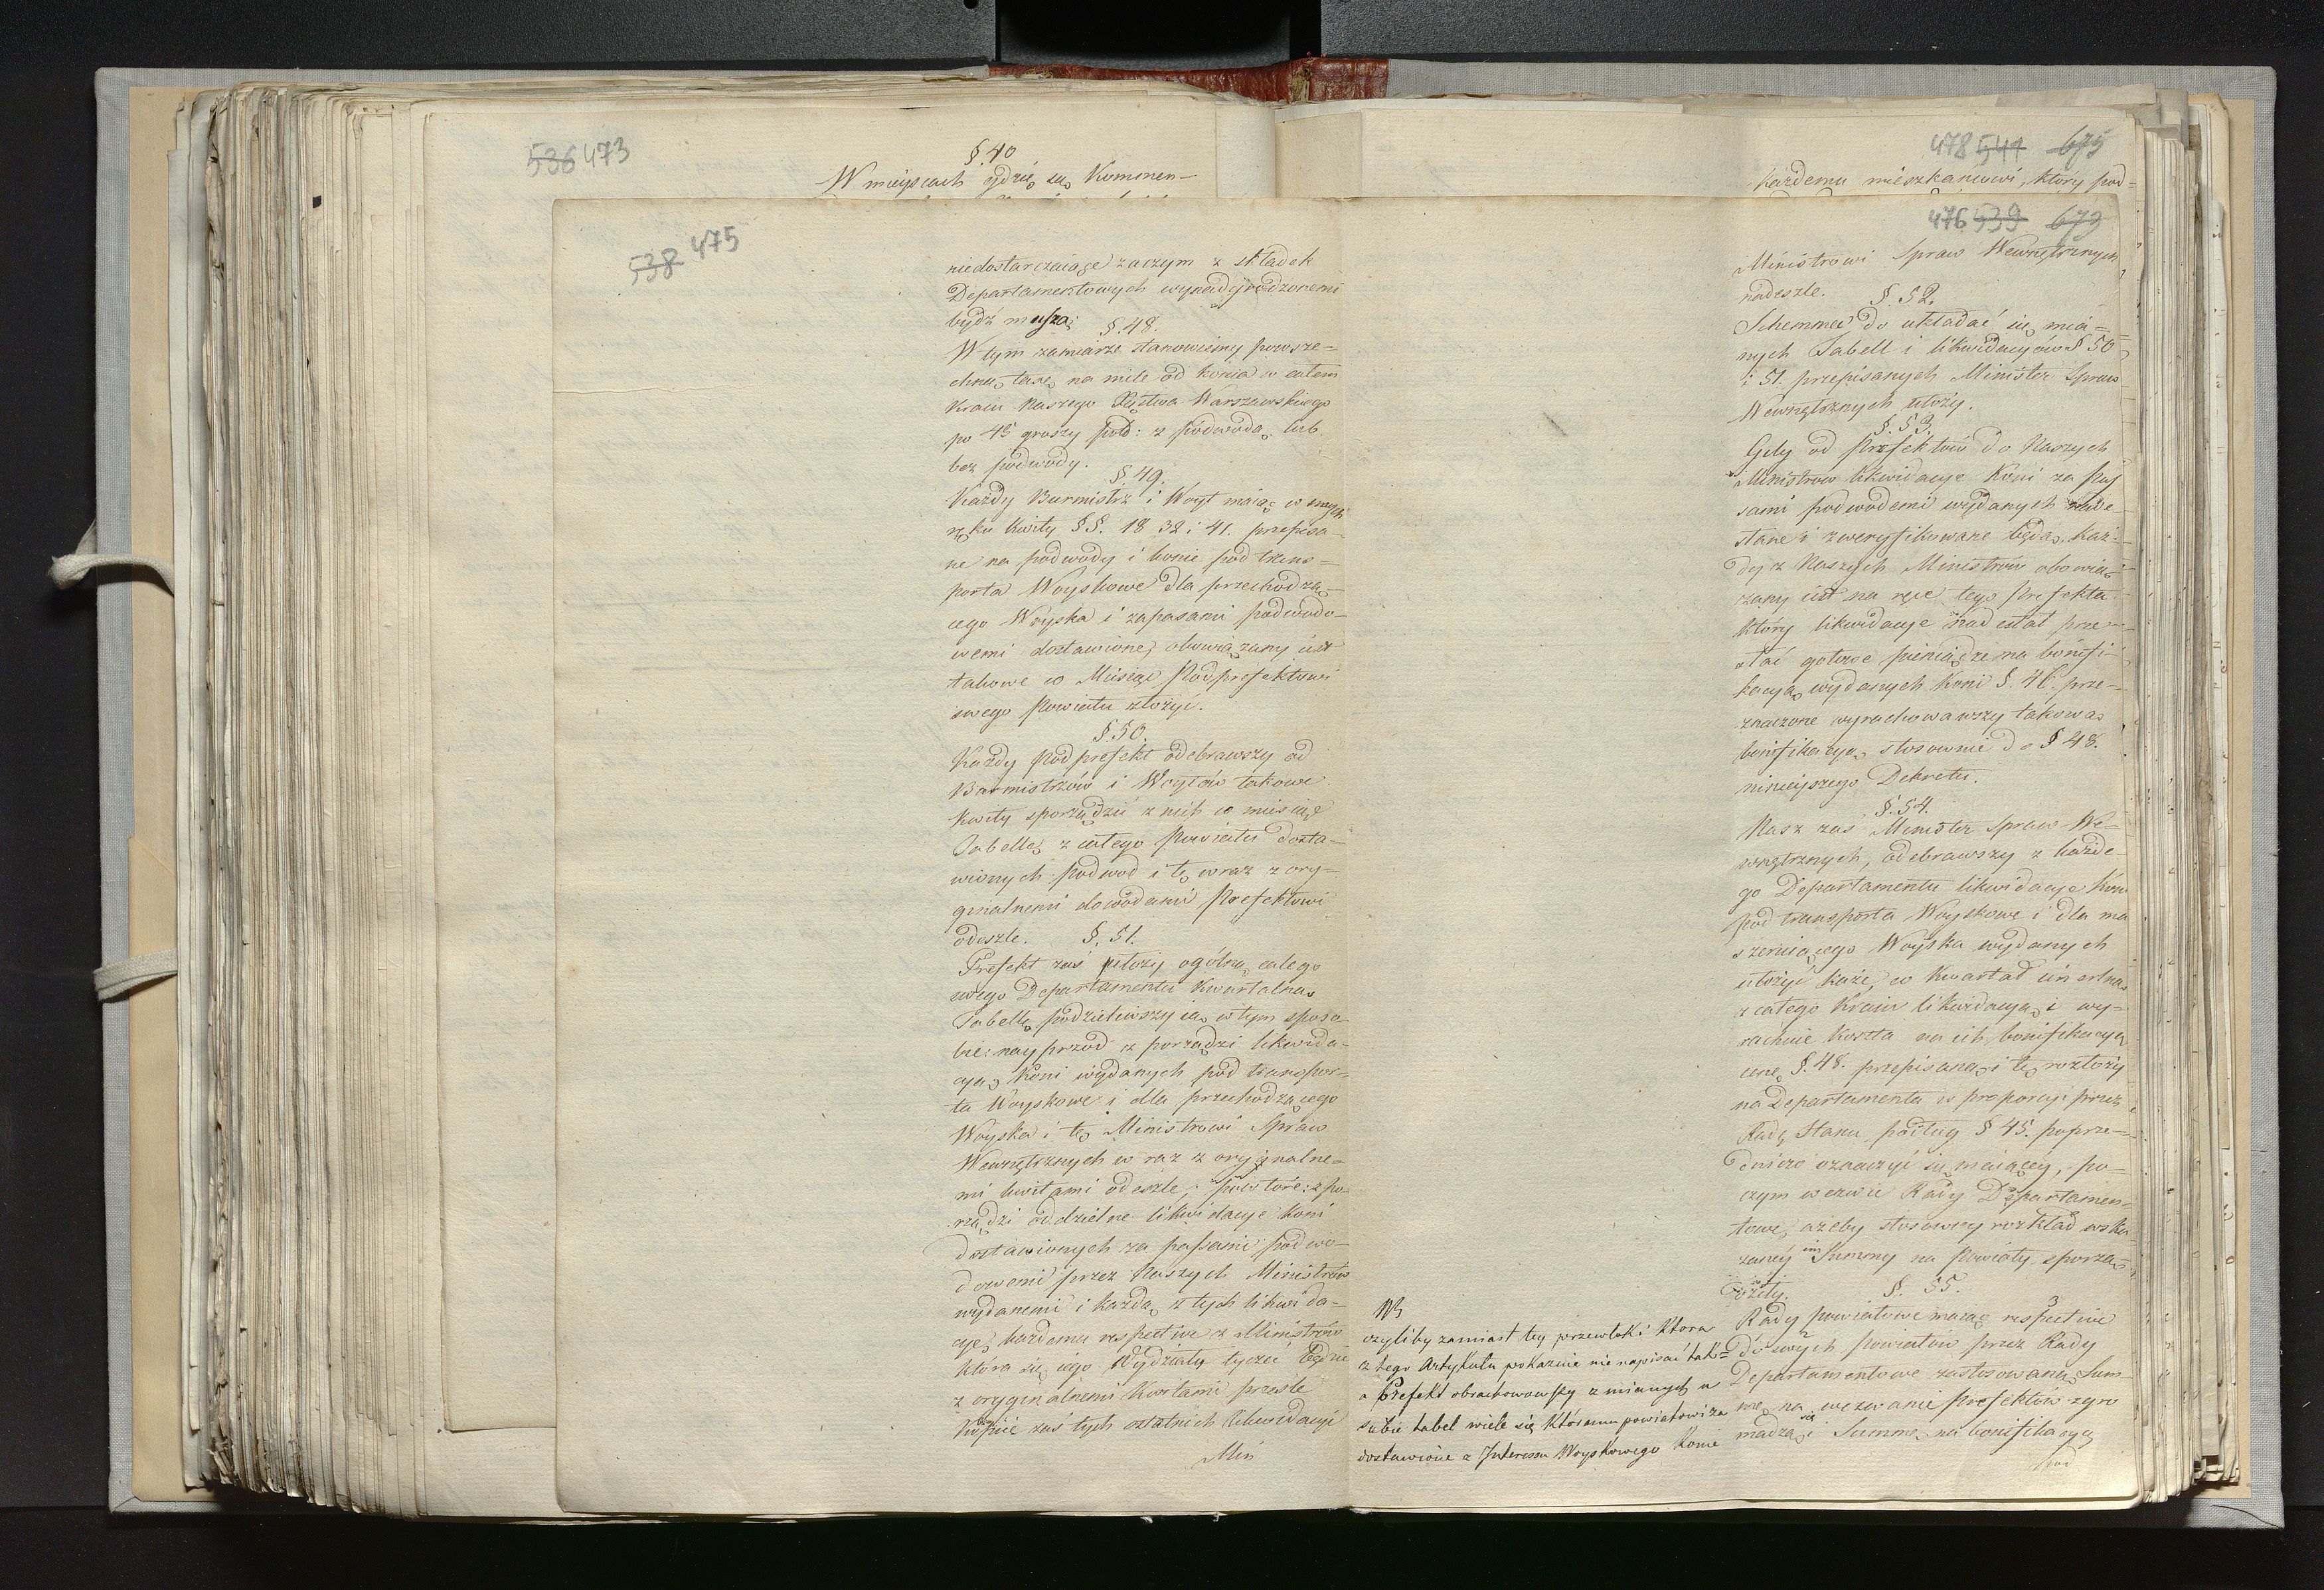 536 473
§. 40
W mieyscach gdzie są Kommen-
538 475
niedostarczaiące zaczym z składek
Departamentowych wynadgrodzonemi
bydź muszą;
§. 48.
W tym zamiarze stanowiemy powsze=
chną taxę na milę od konia w całem
Kraiu Naszego Xięstwa Warszawskiego
po 45 groszy pold: z podwodą lub
bez podwody.
§. 49.
Każdy Burmistrz i Woyt maiąc w swych
ręku kwity §§. 18 32 i 41. przepisa-
ne na podwody i konie pod trans=
porta Woyskowe dla przechodzą-
cego Woyska i zapasami podwodo-
wemi dostawione, obowiązany iest
takowe co Miesiąc Podprefektowi
swego Powiatu złożyć.
§. 50.
Każdy Podprefekt odebrawszy od
Burmistrzów i Woytów takowe
kwity sporządzi z nich co miesiąc
Tabellę z całego Powiatu dosta-
wionych podwod i tę wraz z ory-
ginalnemi dowodami Prefektowi
odeszle.
§. 51.
Prefekt zaś ułoży ogólną całego
swego Departamentu Kwartalną
Tabellę podzieliwszy ią w tym sposo-
bie: nayprzod sporządzi likwida-
cyą Koni wydanych pod transpor-
ta Woyskowe i dla przechodzącego
Woyska i tę Ministrowi Spraw
Wewnętrznych w raz z oryginalne-
mi kwitami odeszle; powtóre: spo-
rządzi oddzielne likwidacye koni
dostawionych za passami podwo-
dowemi przez Naszych Ministrów
wydanemi i każdą z tych likwida-
cyę każdemu respective z Ministrów
która się iego Wydziału tyczeć będzie
z oryginalnemi Kwitami prześle
Kopiie zaś tych ostatnich likwidacyi
Min
478 541 675
każdemu mieszkańcowi, który pod=
476 539 673
Ministrowi Spraw Wewnętrznych
nadeszle.
§. 52.
Schemma do układać się mia=
nych Tabell i likwidacyów § 50
i 51. przepisanych Minister Spraw
Wewnętrznych ułoży.
§. 53.
Gdy od Prefektów do Naszych
Ministrow likwidacye Koni za Pas
sami podwodemi wydanych nade-
słane i zweryfikowane będą, każ-
dy z Naszych Ministrów obowią-
zany iest na ręce tego Prefekta
który likwidacye nadesłał prze-
słać gotowe pieniądze na bonifi-
kacyą wydanych Koni §. 46. prze-
znaczone wyrachowawszy takową
bonifikacyą stosownie do § 48.
ninieyszego Dekretu.
§. 54.
Nasz zaś Minister Spraw We-
wnętrznych, odebrawszy z każde-
go Departamentu likwidacye koni
pod transporta Woyskowe i dla ma
szeruiącego Woyska wydanych
ułożyć każe, co Kwartał
z całego Kraiu likwidacyą i wy-
rachuie koszta na ich bonifikacyą
cenę §. 48. przepisaną i tę rozłoży
na Departamenta w proporcyi przez
Radę Stanu podług § 45. poprze-
dniczo oznaczyć się maiącey, po-
czym wezwie Rady Departamen-
towe, ażeby stosowny rozkład wska
zaney im Summy na Powiaty sporzą-
dziły.
§. 55.
Rady powiatowe maiąc respective
do swych Powiatów przez Rady
Departamentowe zastosowaną Sum-
mę na wezwanie Prefektów zgro
madzą się i Summę na bonifikacyą
pod
NB
czyliby zamiast tey przewłoki Ktora
z tego Artykułu pokazuie nie napisać tak=
a Prefekt obrachowawszy z mianych u
siebie tabel wiele się Któremu powiatowi za
dostawione z Interessu Woyskowego Konie